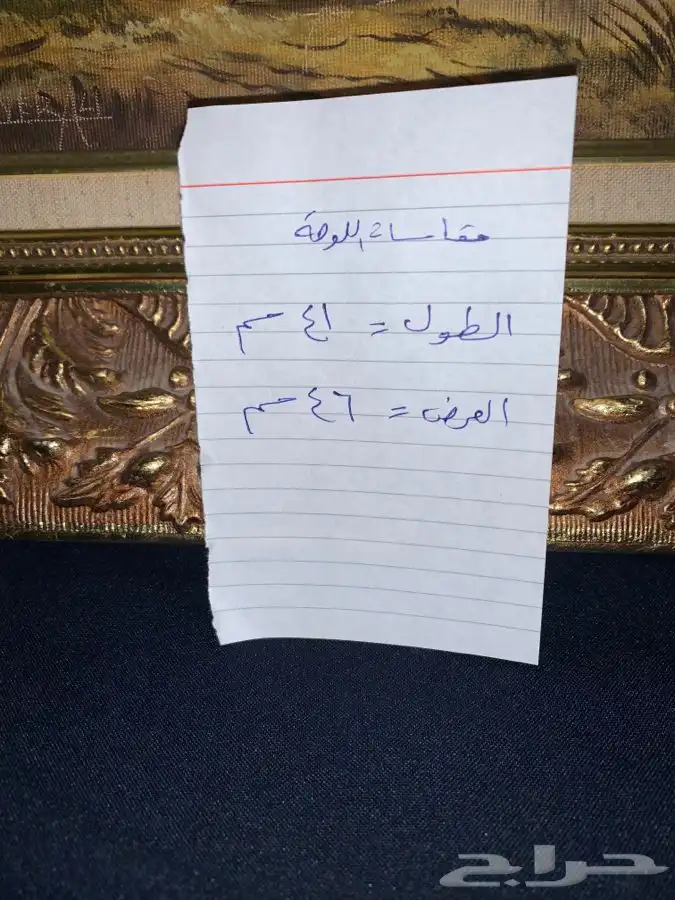 مقاسات اللوحة
الطول = ٤١ سم
العرض = ٤٦ سم
حراج